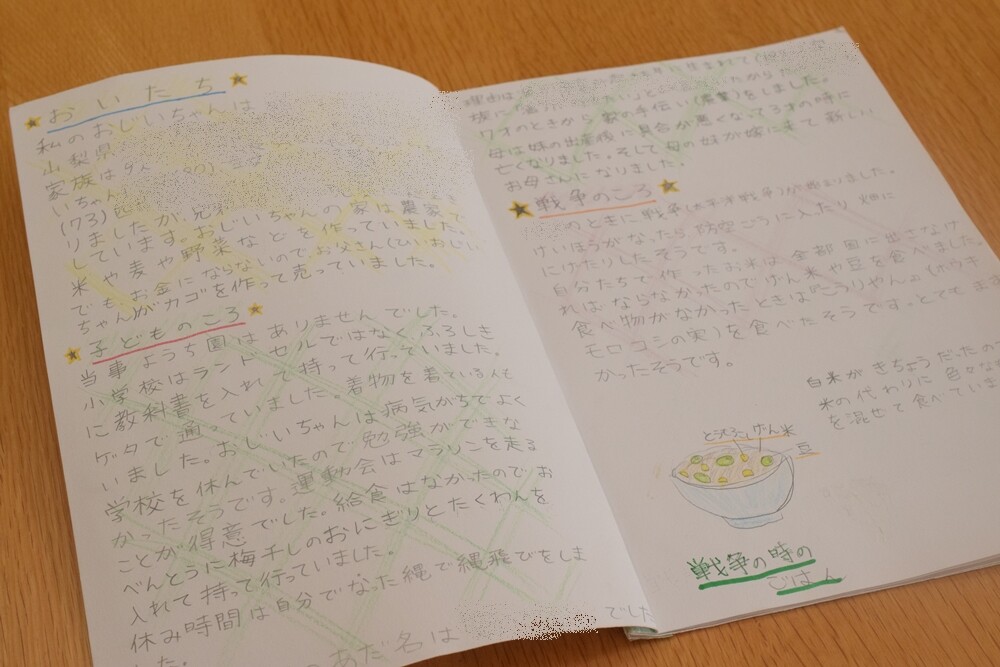 おいたち
私のおじいちゃんは
山梨県
家族は
いちゃん
(73)
りましたが、兄弟 おじいちゃんの家は農家で
しています。
米や麦や野菜などを作っていました。
でもお金にならないのでお父さん(ひいおじい
ちゃん)がカゴを作って売っていました。
子どものころ
当事ようち園はありませんでした。
小学校はランドセルではなくふろしき
に教科書を入れて持って行っていました。
ゲタで通っていました。着物を着ている人も
いました。おじいちゃんは病気がちでよく
学校を休んでいたので勉強ができな
かったそうです。運動会はマラソンを走る
ことが得意でした。給食はなかったのでお
べんとうに梅干しのおにぎりとたくわんを
入れて持って行っていました。
休み時間は自分でなった縄で縄飛びをしま
した。
のあだ名は でした
理由は
ワオのときから家の手伝い(農業)をしました。
母は妹の出産後に具合が悪くなって3才の時に
亡くなりました。そして母の妹が嫁に来て新しい
お母さんになりました。
戦争のころ
のときに戦争(太平洋戦争)が始まりました。
けいほうがなったら防空ごうに入たり 畑に
にげたりしたそうです。
自分たちで作ったお米は全部国に出さなけ
ればならなかったのでげん米や豆を食べました。
食べ物がなかったときは『こうりやん』(ホウキ
モロコシの実)を食べたそうです。とても
かったそうです。
白米がきちょうだったの
米の代わりに色々な
を混ぜて食べていま
げん米
豆
戦争の時の
ごはん